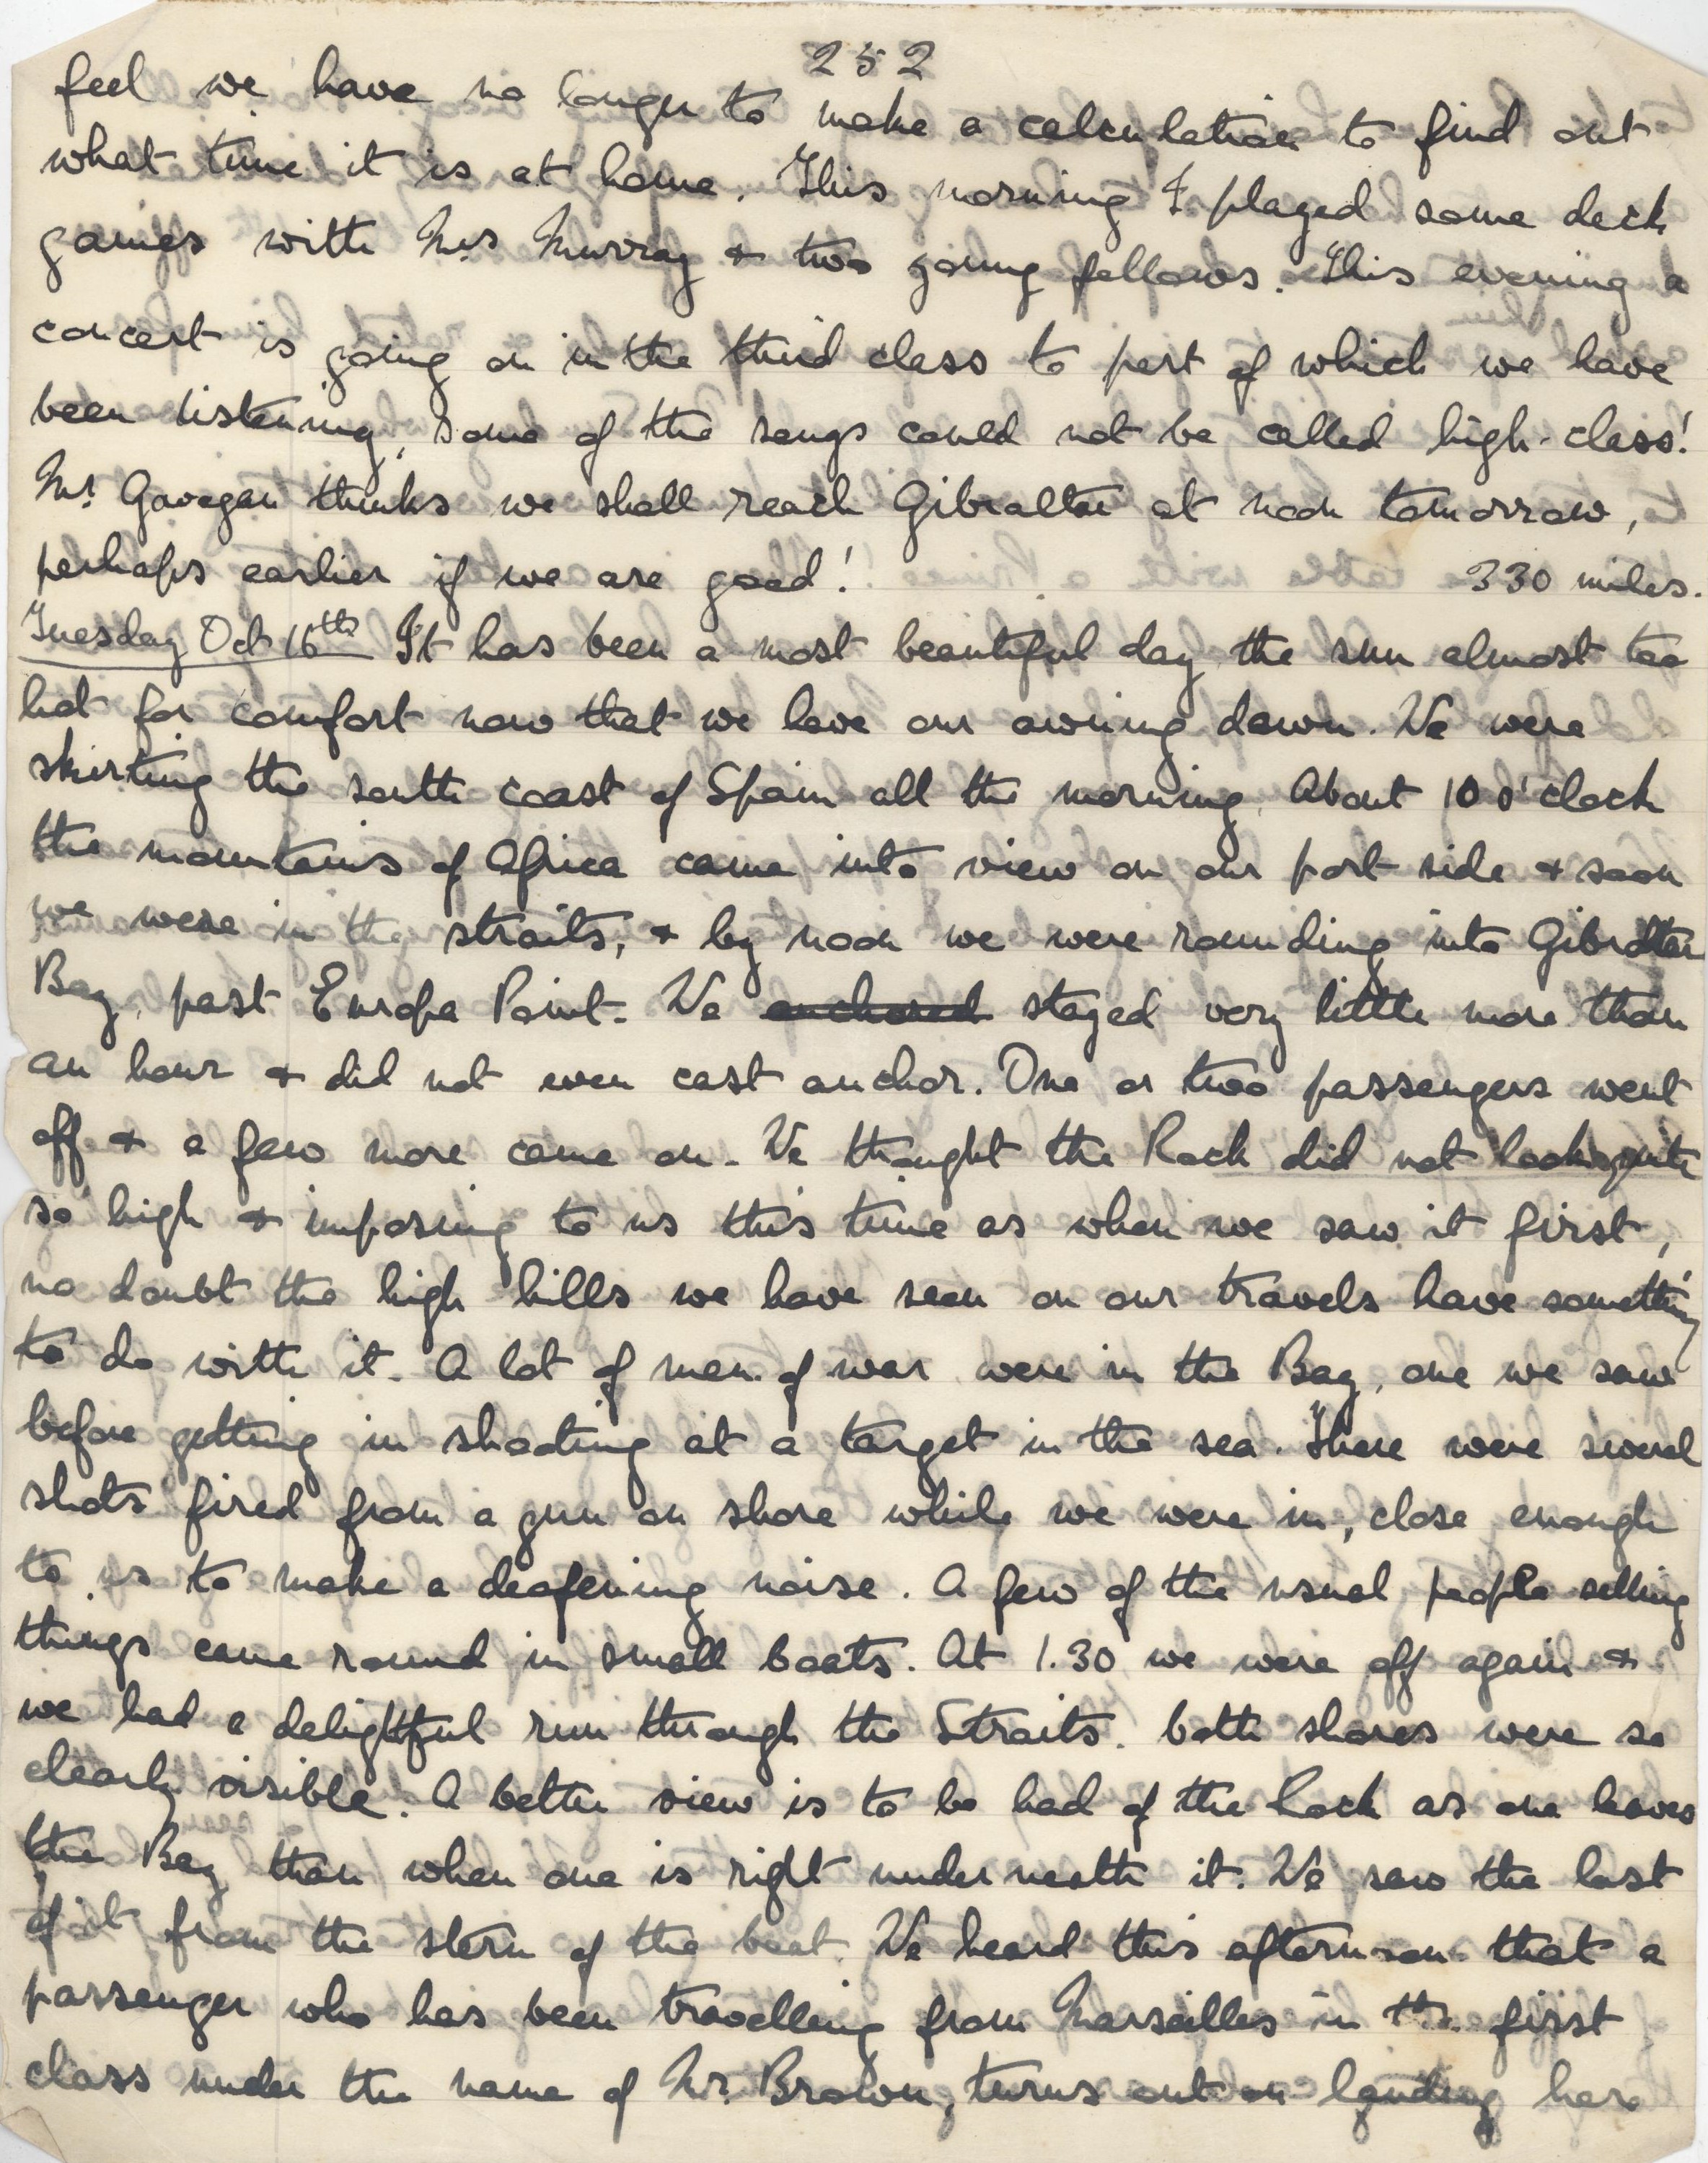 252
feel we have no longer to make a calculation to find out
what time it is at home. This morning I played some deck
games with Mrs Murray & two young fellows. This evening a
concert is going on in the third class to part of which we have
been listening, some of the songs could not be called high-class!
Mr. Gavegan thinks we shall reach Gibraltar at noon tomorrow,
perhaps earlier if we are good! 330 miles.
Tuesday Oct 16th It has been a most beautiful day the sun almost too
hot for comfort now that we have our awning down. We were
skirting the south coast of Spain all the morning. About 10 o'clock
the mountains of Africa came into view on our port side & soon
we were in the straits, & by noon we were rounding into Gibraltar
Bay, past Europa Point. We anchored stayed very little more than
an hour & did not even cast anchor. One or two passengers went
off & a few more came on. We thought the Rock did not look quite
so high & imposing to us this time as when we saw it first,
no doubt the high hills we have seen on our travels have something
to do with it. A lot of men of war were in the Bay, one we saw
before getting in shooting at a target in the sea. There were several
shots fired from a gun on shore while we were in, close enough
to us to make a deafening noise. A few of the usual people selling
things came round in small boats. At 1.30 we were off again &
we had a delightful run through the Straits. both shores were so
clearly visible. A better view is to be had of the Rock as one leaves
the Bay than when one is right underneath it. We saw the last
of it from the stern of the boat. We heard this afternoon that a
passenger who has been travelling from Marseilles in the first
class under the name of Mr. Brown, turns out on landing here